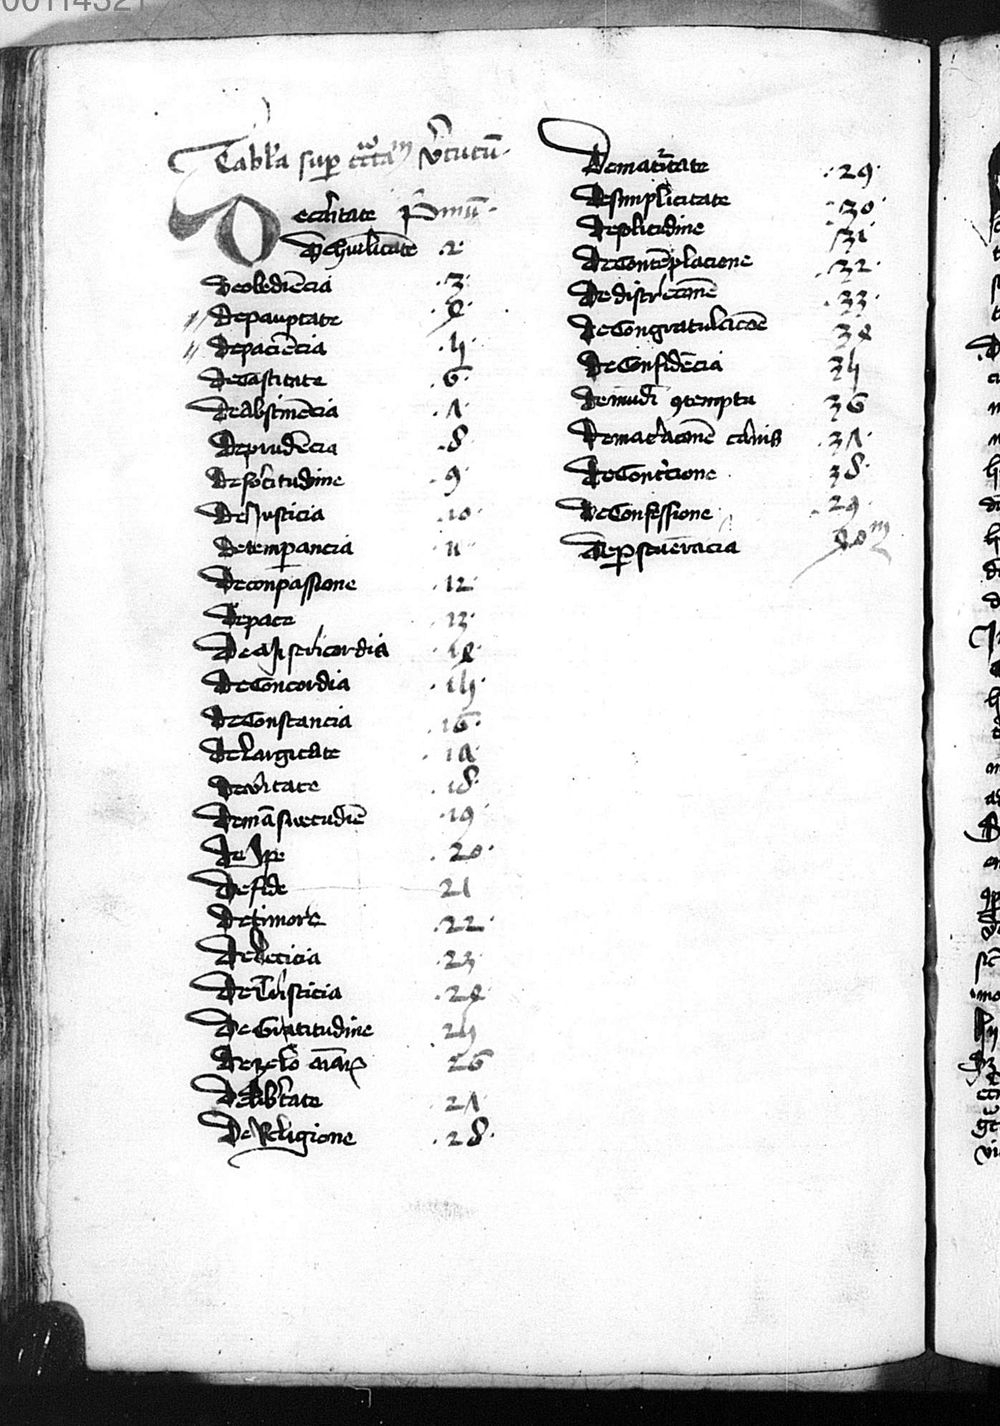 Tabla sup tctatm vtutu
De caritate Pmu
De humilitate 2
De obediencia 3
De paupertate 4
De paciencia 5
De Castitate 6
De abstinencia 7
De prudencia 8
De solitudine 9
De Justicia 10
De temperancia 11
De conpassione 12
De pace 13
De Misericordia 14
De Concordia 15
De Constancia 16
De largitate 17
De veritate 18
De mansuetudine 19
De spe 20
De fide 21
De timore 22
De leticia 23
De Tristicia 24
De Gratitudine 25
De zelo aiaru 26
De libertate 27
De Religione 28
De maturitate 29
De simplicitate 30
De plitudine 31
De Contemplacione 32
De discrecione 33
De Congratulacione 34
De Confidencia 35
De mudi contemptu 36
De maceracione carnis 37
De Contricione 38
De Confessione 29
De perseverancia 40m